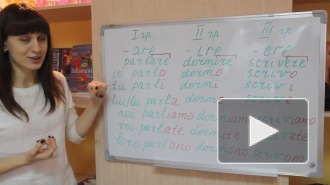 I гр. II гр. III гр.
-are -ire -ere
parlare dormire scrivere
io parlo dormo scrivo
tu parli dormi scrivi
lui/lei parla dorme scrive
noi parliamo dormiamo scriviamo
voi parlate dormite scrivete
loro parlano dormono scrivono